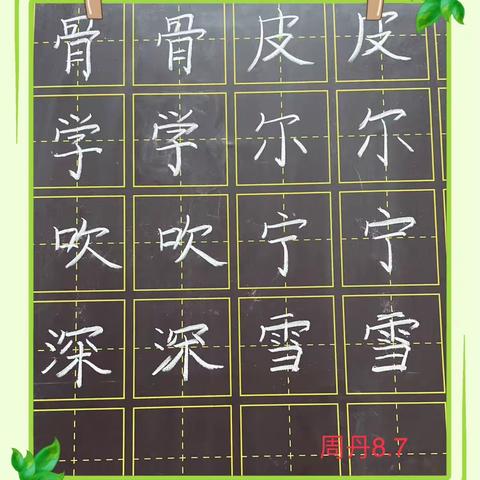 骨骨皮皮
学学尔尔
吹吹宁宁
深深雪雪
周丹8.7